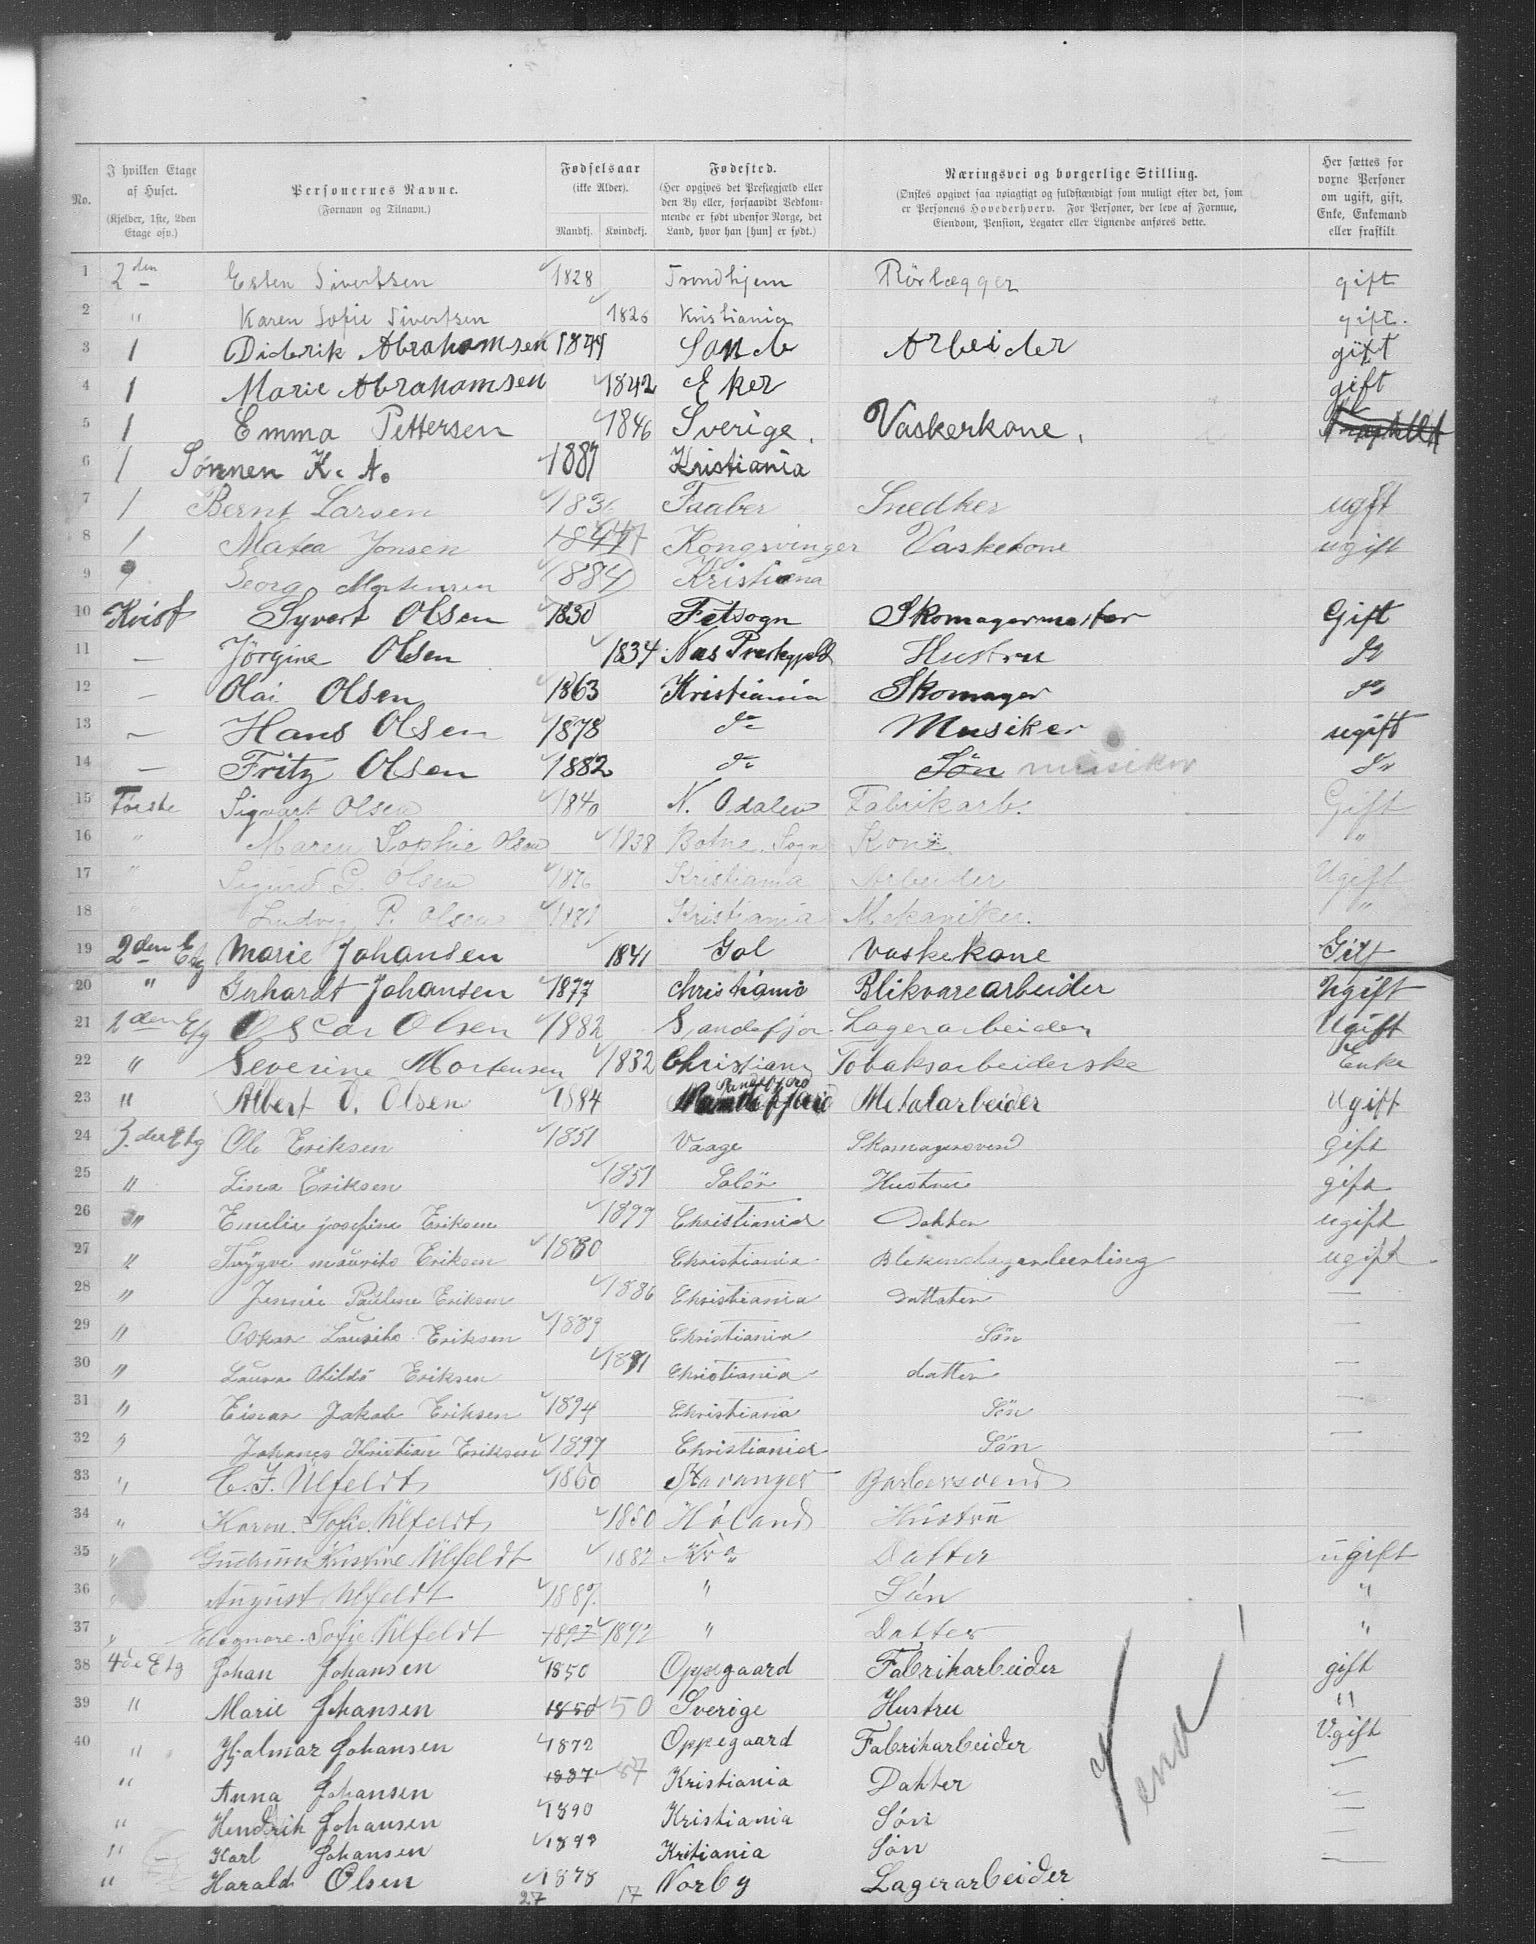 No. | I hvilken Etage af Huset. (Kjelder, 1ste, 2den Etage osv.) | Personernes Navne. (Fornavn og Tilnavn.) | Fødselsaar (ikke Alder). Mandkj. Kvindekj. | Fødested. (Her opgives det Prestegjæld eller den By eller, forsaavidt Vedkommende er født udenfor Norge, det Land, hvor han [hun] er født.) | Næringsvei og borgerlige Stilling. (Ønskes opgivet saa nøiagtigt og fuldstændigt som muligt efter det, som er Personens Hovederhverv. For Personer, der leve af Formue, Eiendom, Pension, Legater eller Lignende anføres dette. | Her sættes for voxne Personer om ugift, gift, Enke, Enkemand eller fraskilt
1 2den Esten Sivertsen 1828 Trondhjem Rörlægger gift
2 " Karen Sofie Sivertsen 1826 Kristiania gift.
3 1 Diderik Abrahamsen 1844 Sande Arbeider gift
4 1 Marie Abrahamsen 1842 Eker gift
5 1 Emma Pettersen 1846 Sverige. Vaskerkone.
6 1 Sønnen K. A. 1887 Kristiania
7 1 Bernt Larsen 1836 Faaber Snedker ugft
8 1 Matea Jonsen Kongsvinger Vaskekone ugift
9 Georg Mortensen 1884 Kristiania
10 Kvist Syvert Olsen 1830 Fetsogn Skomagermester Gift
11 — Jörgine Olsen 1834 Nas Prestegjeld Hustru do
12 — Olai Olsen 1863 Kristiania Skomager do
13 — Hans Olsen 1878 do Musiker ugift
14 — Fritz Olsen 1882 do Søn musiker do
15 Første Sigvart Olsen 1840 N. Odalen Fabrikarb. Gift
16 " Maren Sophie Olsen 1838 Botne Sogn Kone "
17 " Sigurd P. Olsen 1876 Kristiania Arbeider Ugift
18 " Ludvig P. Olsen 1881 Kristiania Mekaniker. "
19 2den Etg Marie Johansen 1841 Gol Vaskekone Gift
20 " Gerhardt Johansen 1877 Christiania Blikvarearbeider Ugift
21 2den Etg Oscar Olsen 1882 Sandefjor Lagerarbeider Ugift
22 " Severine Mortensen 1832 Christiania Tobaksarbeiderske Enke
23 " Albert O. Olsen 1884 Sandefjord Metalarbeider Ugift
24 3.die Etg Ole Eriksen 1851 Vaage Skomagersvend gift
25 " Lina Eriksen 1851 Solör Hustru gift
26 " Emelie josefine Eriksen 1877 Christiania Datter ugift
27 " Trygve mauritz Eriksen 1880 Christiania ugift
28 " Jennie Pauline Eriksen 1886 Christiania Dattater —
29 " Oskar Lauritz Eriksen 1889 Christiania Sön —
30 " Laura Otilde Eriksen 1891 Christiania datter —
31 " Einar Jakob Eriksen 1894 Christiania Sön —
32 " Johanes Kristian Eriksen 1897 Christiania Sön —
33 " C. F. Ulfeldt 1860 Stavanger Barbersvend
34 " Karen Sofie Ulfeldt 1860 Høland Hustru
35 " Gudrun Kristine Ulfeldt 1882 Kra Datter ugift
36 " August Ulfeldt 1887. " Søn "
37 " Eleonore Sofie Ulfeldt 1892 1892 " Datter "
38 4de Etg Johan Johansen 1850 Oppegaard Fabrikarbeider gift
39 " Marie Johansen 1850 50 Sverige Hustru "
40 " Hjalmar Johansen 1872 Oppegaard Fabrikarbeider Ugift
" Anna Johansen 1887 87 Kristiania Dahter —
" Hendrik Johansen 1890 Kristiania Sön —
" Karl Johansen 1893 Kritiania Søn —
" Harald Olsen 1878 Norby Lagerarbeider —
27 17